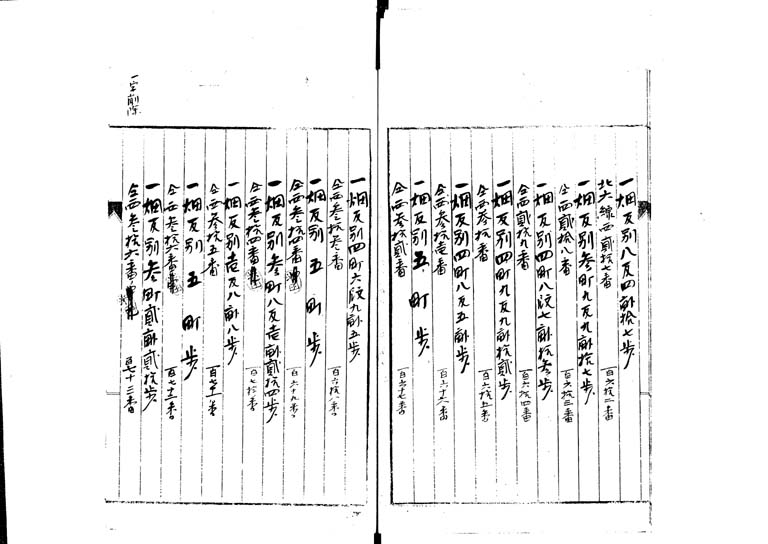 一畑反別八反四畝拾七歩
北六線西貳拾七番 百六拾二番
一畑反別参町九反九畝拾七歩
仝西貳拾八番 百六拾三番
一畑反別四町八段七畝拾参歩
仝西貳拾九番 百六拾四番
一畑反別四町九反九畝拾貳歩
仝西参拾番 百六拾五番
一畑反別四町八反五畝歩
仝西参拾壱番 百六十六番
一畑反別五町歩
仝西参拾貳番 百六十七番
一畑反別四町六段九畝五歩
仝西参拾参番 百六拾八番
一畑反別五町歩
仝西参拾四番 百六十九番
一畑反別参町八反壱畝貳拾四歩
仝西参拾四番 百七拾番
一畑反別壱反八畝八歩
仝西参拾五番 百七十一番
一畑反別五町歩
仝西参拾六番 百七十二番
一畑反別参町貳畝貳拾歩
仝西参拾六番 百七十三番
一字削除